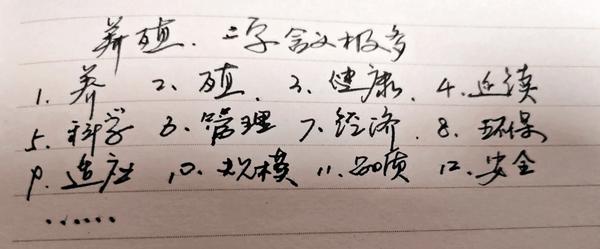 养殖.二字含义极多
1. 养 2. 殖. 3. 健康. 4. 连续
5. 科学 6. 管理 7. 经济. 8. 环保
9. 造血 10. 规模 11. 品质 12. 安全
......